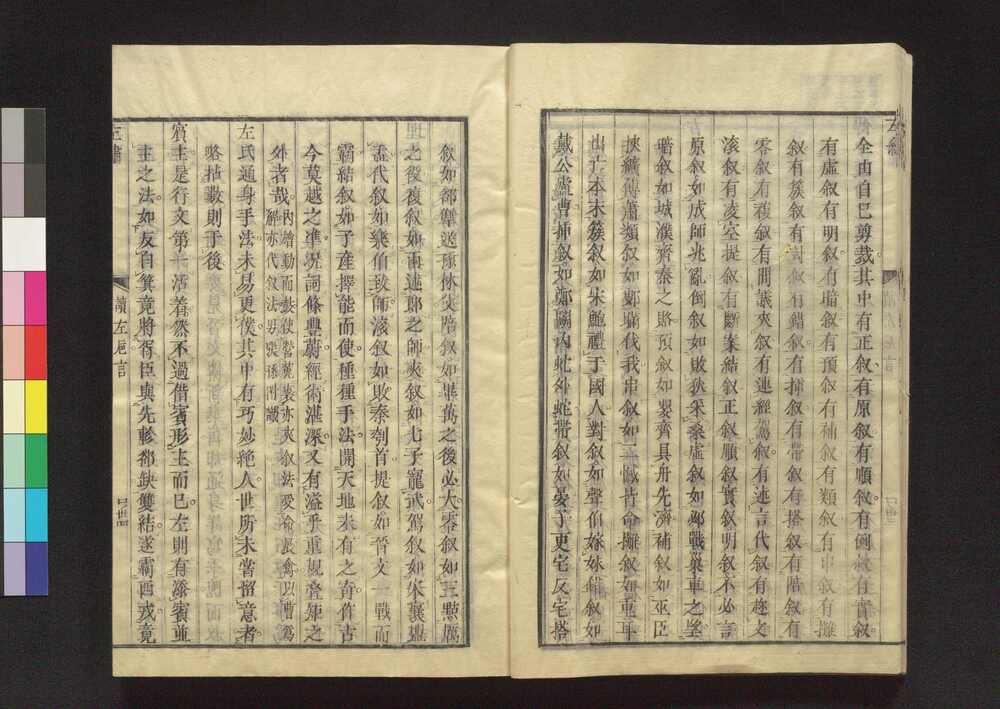 全由自己剪裁其中有正敘有原敘有順敘有倒敘有實敘
有虛敘有明敘有暗敘有預敘有補敘有類敘有串敘有攤
敘有簇敘有對敘有錯敘有插敘有帶敘有搭敘有陪敘有
零敘有複敘有間議夾敘有連經駕敘有述言代敘有趁文
滾敘有凌空提敘有斷案結敘正敘順敘實敘明敘不必言
原敘如成師兆亂倒敘如敗狄采桑虛敘如鄢戰巢車之望
暗敘如城濮齊秦之賂預敘如嬰齊具舟先濟補敘如巫臣
挾纊傅蕭類敘如鄭瞞伐我串敘如二憾皆命攤敘如重耳
出亡本末簇敘如宋鮑禮于國人對敘如聲伯嫁妹錯敘如
戴公廬曹插敘如鄭鬬內蛇外蛇帶敘如晏子更宅反宅搭
敘如郤犨送孫林父陪敘如畢萬之後必大零敘如三點厲
之役複敘如兩述郎之師夾敘如七子寵武駕敘如宋襄
孟代敘如樂伯致師滾敘如敗秦刳首提敘如晉文一戰而
霸結敘如子產擇能而使種種手法開天地未有之奇作古
今莫越之準況詞條豐蔚經術湛深又有溢乎重規疊矩之
外者哉
左氏通身手法未易更僕其中有巧妙絕人世所未嘗留意者
略拈數則于後
賓主是行文第一活著然不過借賓形主而已左則有添賓並
主之法如友自箕竟將胥臣與先軫郤缺雙結遂霸西戎竟
讀左卮言